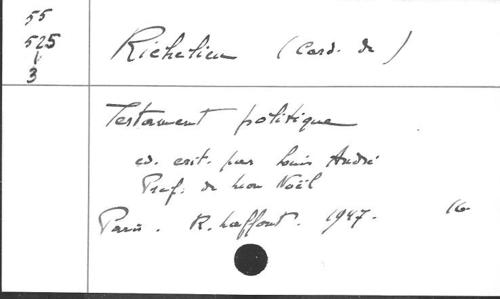 55
525
3
Richelieu (Card. de)
Testament politique
ed. crit. par Louis André
Préf. de Léon Noël
Paris. R. Laffont. 1947. 16